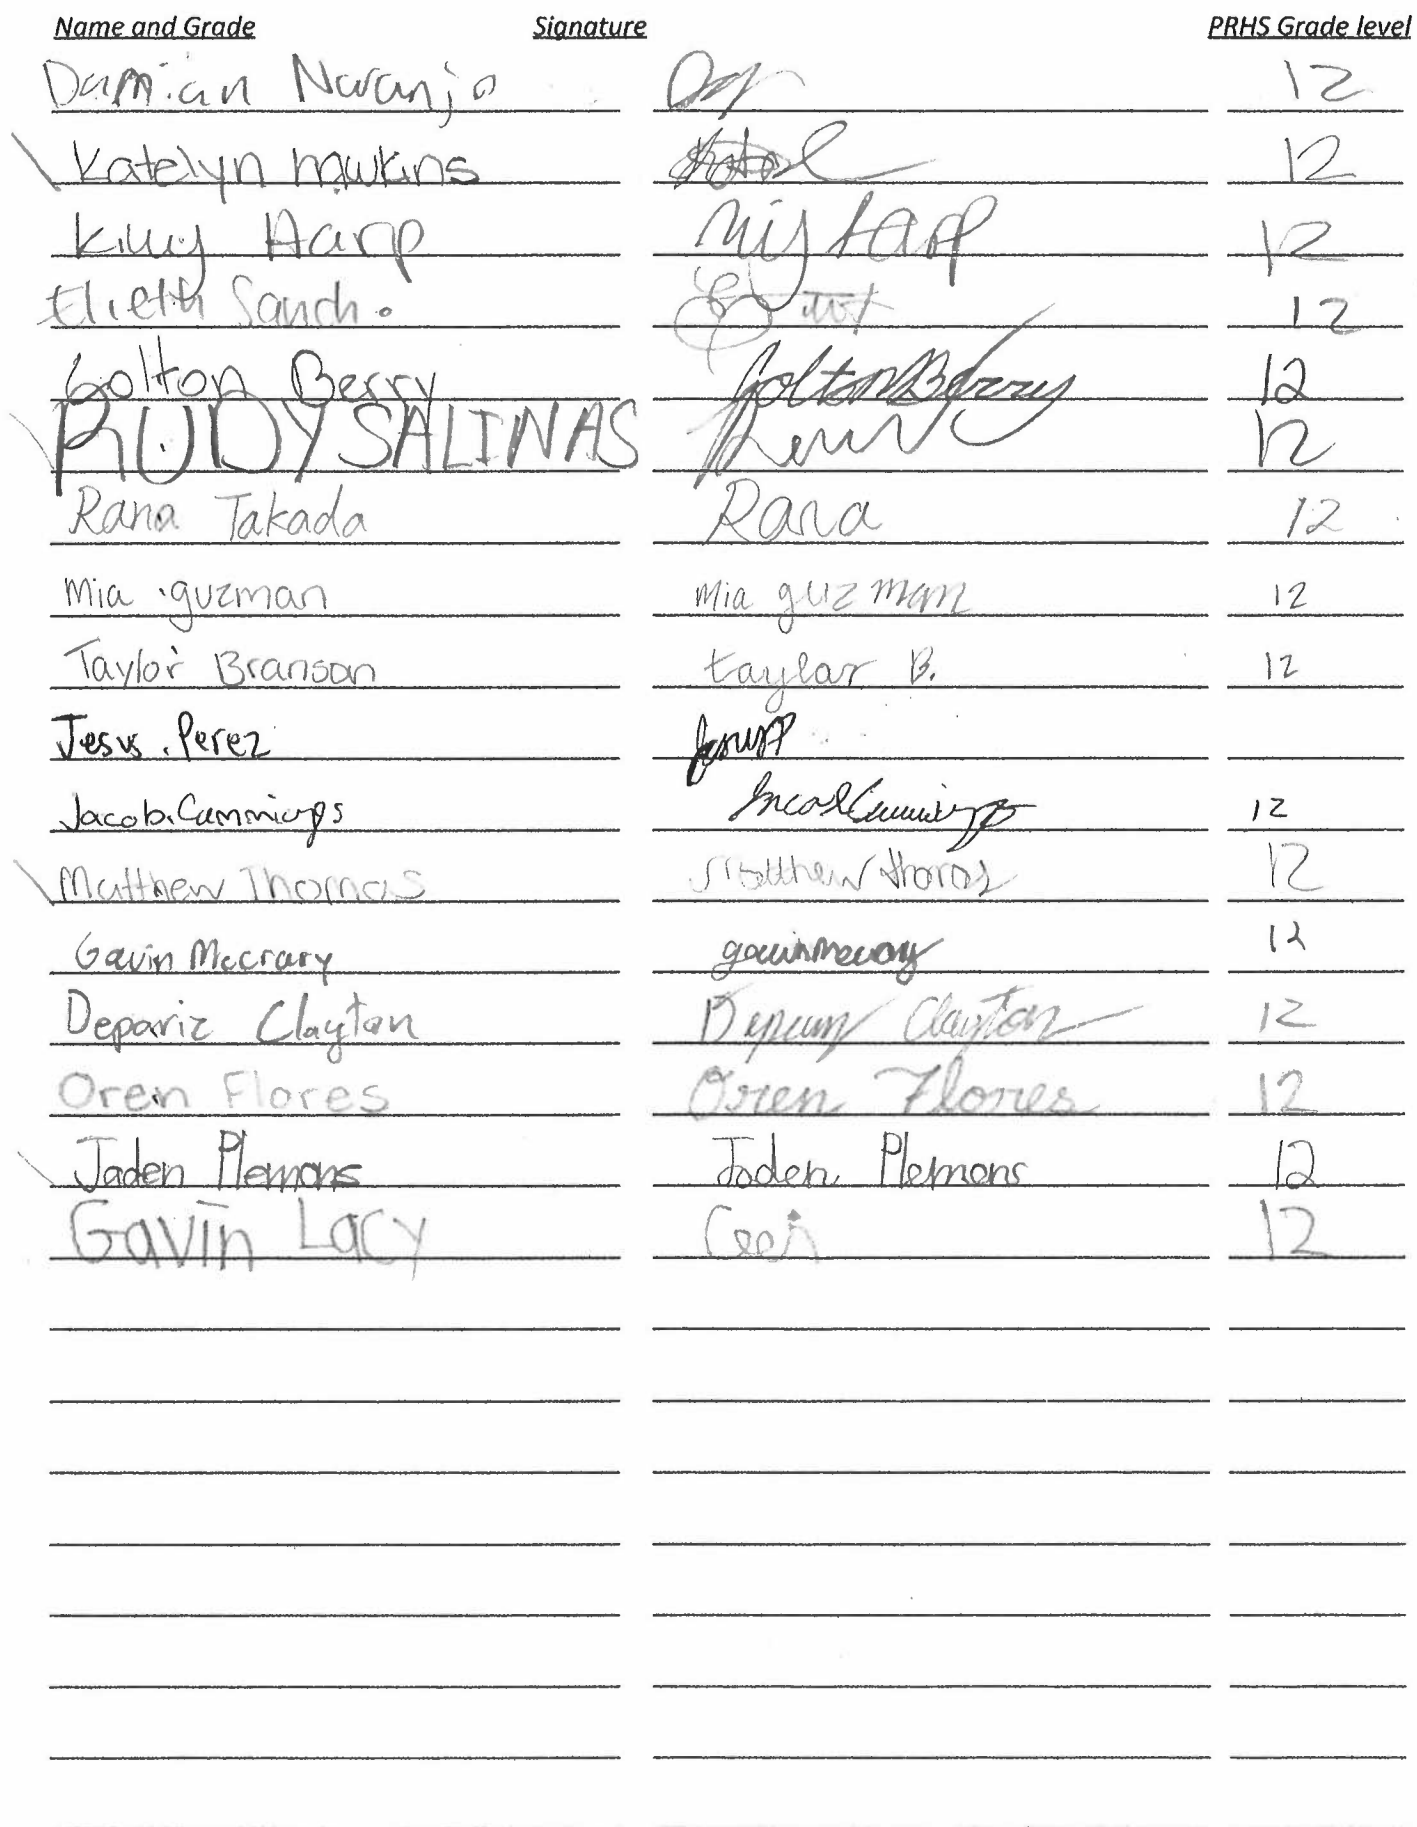 Name and Grade Signature PRHS Grade level
Damian Naranjo 12
Katelyn Hawkins 12
Harp 12
Elieth 12
Colton Berry Colton Berry 12
RUDY SALINAS 12
Rana Takada Rana 12
Mia guzman Mia guzman 12
Taylor Branson taylor B. 12
Jesus Perez
Jacob Cummings Jacob Cummings 12
Matthew Thomas Matthew Thomas 12
Gavin Mccrary gavin Mccrary 12
Clayton Clayton 12
Oren Flores Oren Flores 12
Jaden Plemons Jaden Plemons 12
Gavin Lacy 12